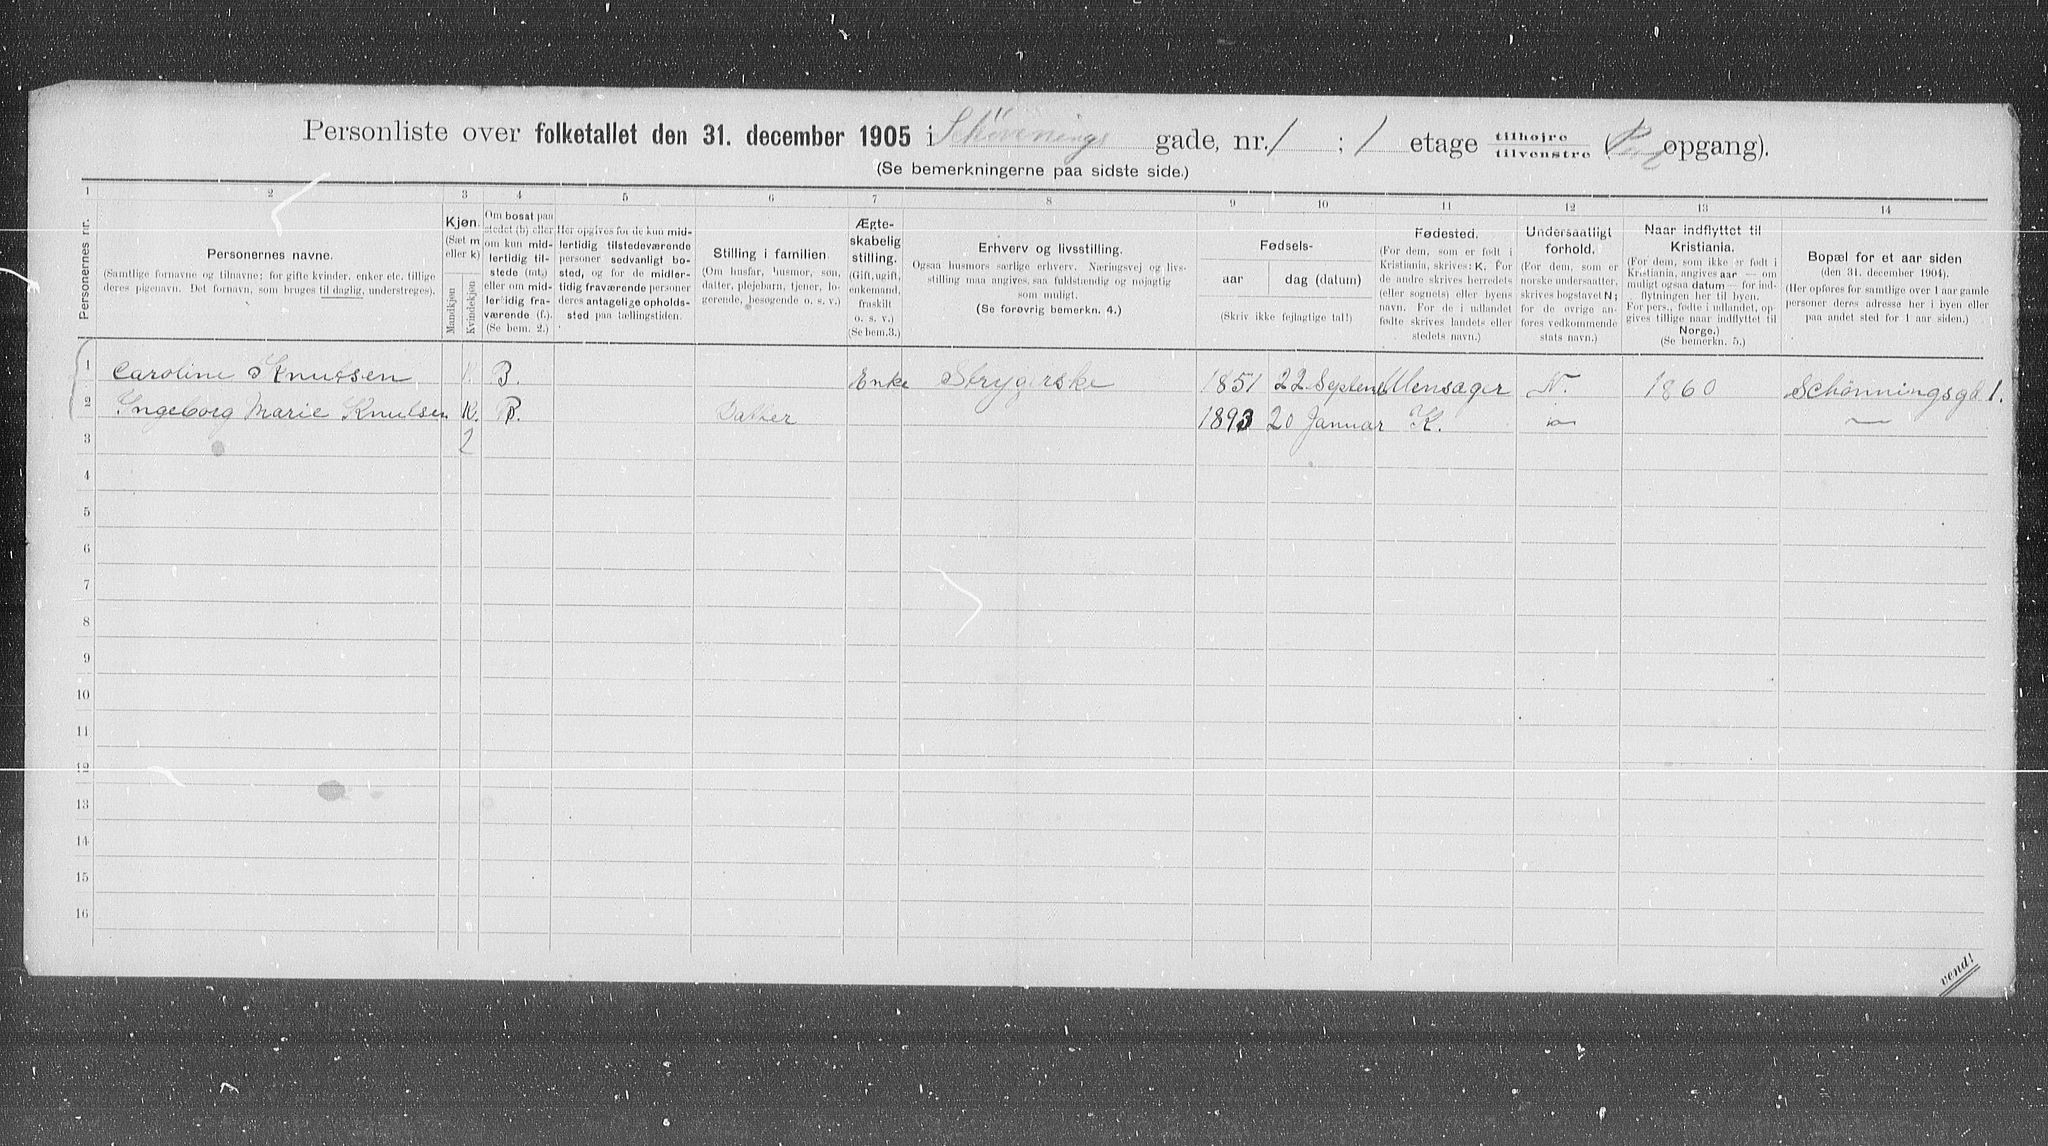 Personliste over folketallet den 31. december 1905 i Schövenings gade, nr. 1 ; 1 etage tilhøjre tilvenstre ( opgang).
(Se bemerkningerne paa sidste side.)
1 2 3 4 5 6 7 8 9 10 11 12 13 14
Personernes nr.
Personernes navne.
(Samtlige fornavne og tilnavne; for gifte kvinder, enker etc. tillige
deres pigenavn. Det fornavn, som bruges til daglig, understreges).
Kjøn.
(Sæt m
eller k)
Mandkjøn
Kvindekjøn
Om bosat paa
stedet (b) eller
om kun mid-
lertidig til-
stede (mt.)
eller om mid-
lertidig fra-
værende (f.).
(Se bem. 2.)
Her opgives for de kun mid-
lertidig tilstedeværende
personer sedvanligt bo-
sted, og for de midler-
tidig fraværende personer
deres antagelige opholds-
sted paa tællingstiden.
Stilling i familien
(Om husfar, husmor, søn,
datter, plejebarn, tjener, lo-
gerende, besøgende o. s. v.)
Ægte-
skabelig
stilling.
(Gift, ugift,
enkemand,
fraskilt
o. s. v.)
(Se bem. 3.)
Erhverv og livsstilling.
Ogsaa husmors særlige erhverv. Næringsvej og livs-
stilling maa angives saa fuldstændig og nøjagtig
som muligt.
(Se forøvrig bemerkn. 4.)
Fødsels-
aar
dag (datum)
(Skriv ikke fejlagtige tal!)
Fødested.
(For dem, som er født i
Kristiania, skrives: K. For
de andre skrives herredets
(eller sognets) eller byens
navn. For de i udlandet
fødte skrives landets eller
stedets navn.)
Undersaatligt
forhold.
(For dem, som er
norske undersaatter,
skrives bogstavet N;
for de øvrige an-
føres vedkommende
stats navn.)
Naar indflyttet til
Kristiania.
(For dem, som ikke er født i
Kristiania, angives aar — om
muligt ogsaa datum — for ind-
flytningen her til byen.
For pers., fødte i udlandet, op-
gives tillige naar indflyttet til
Norge.)
(Se bemerkn. 5.)
Bopæl for et aar siden
(den 31. december 1904).
(Her opføres for samtlige over 1 aar gamle
personer deres adresse her i byen eller
paa andet sted for 1 aar siden.)
1 Caroline Knutsen B. Enke Strygerske 1851 22 Septem Ullensager N. 1860 Schönningsgd 1.
2 Ingeborg Marie Knutsen K. B. Datter 1893 20 Januar K. — —
3 2
4
5
6
7
8
9
10
11
12
13
14
15
16
vend!